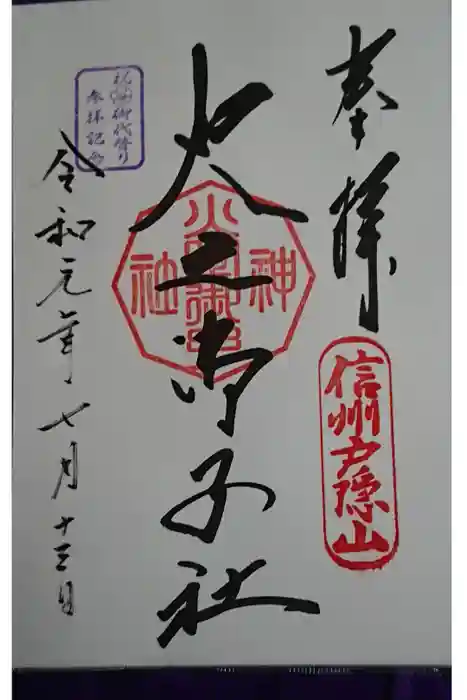 奉拝
信州戸隠山
火之御子社
火之御子
神社
令和元年七月十三日
祝 御代替り
参拝記念